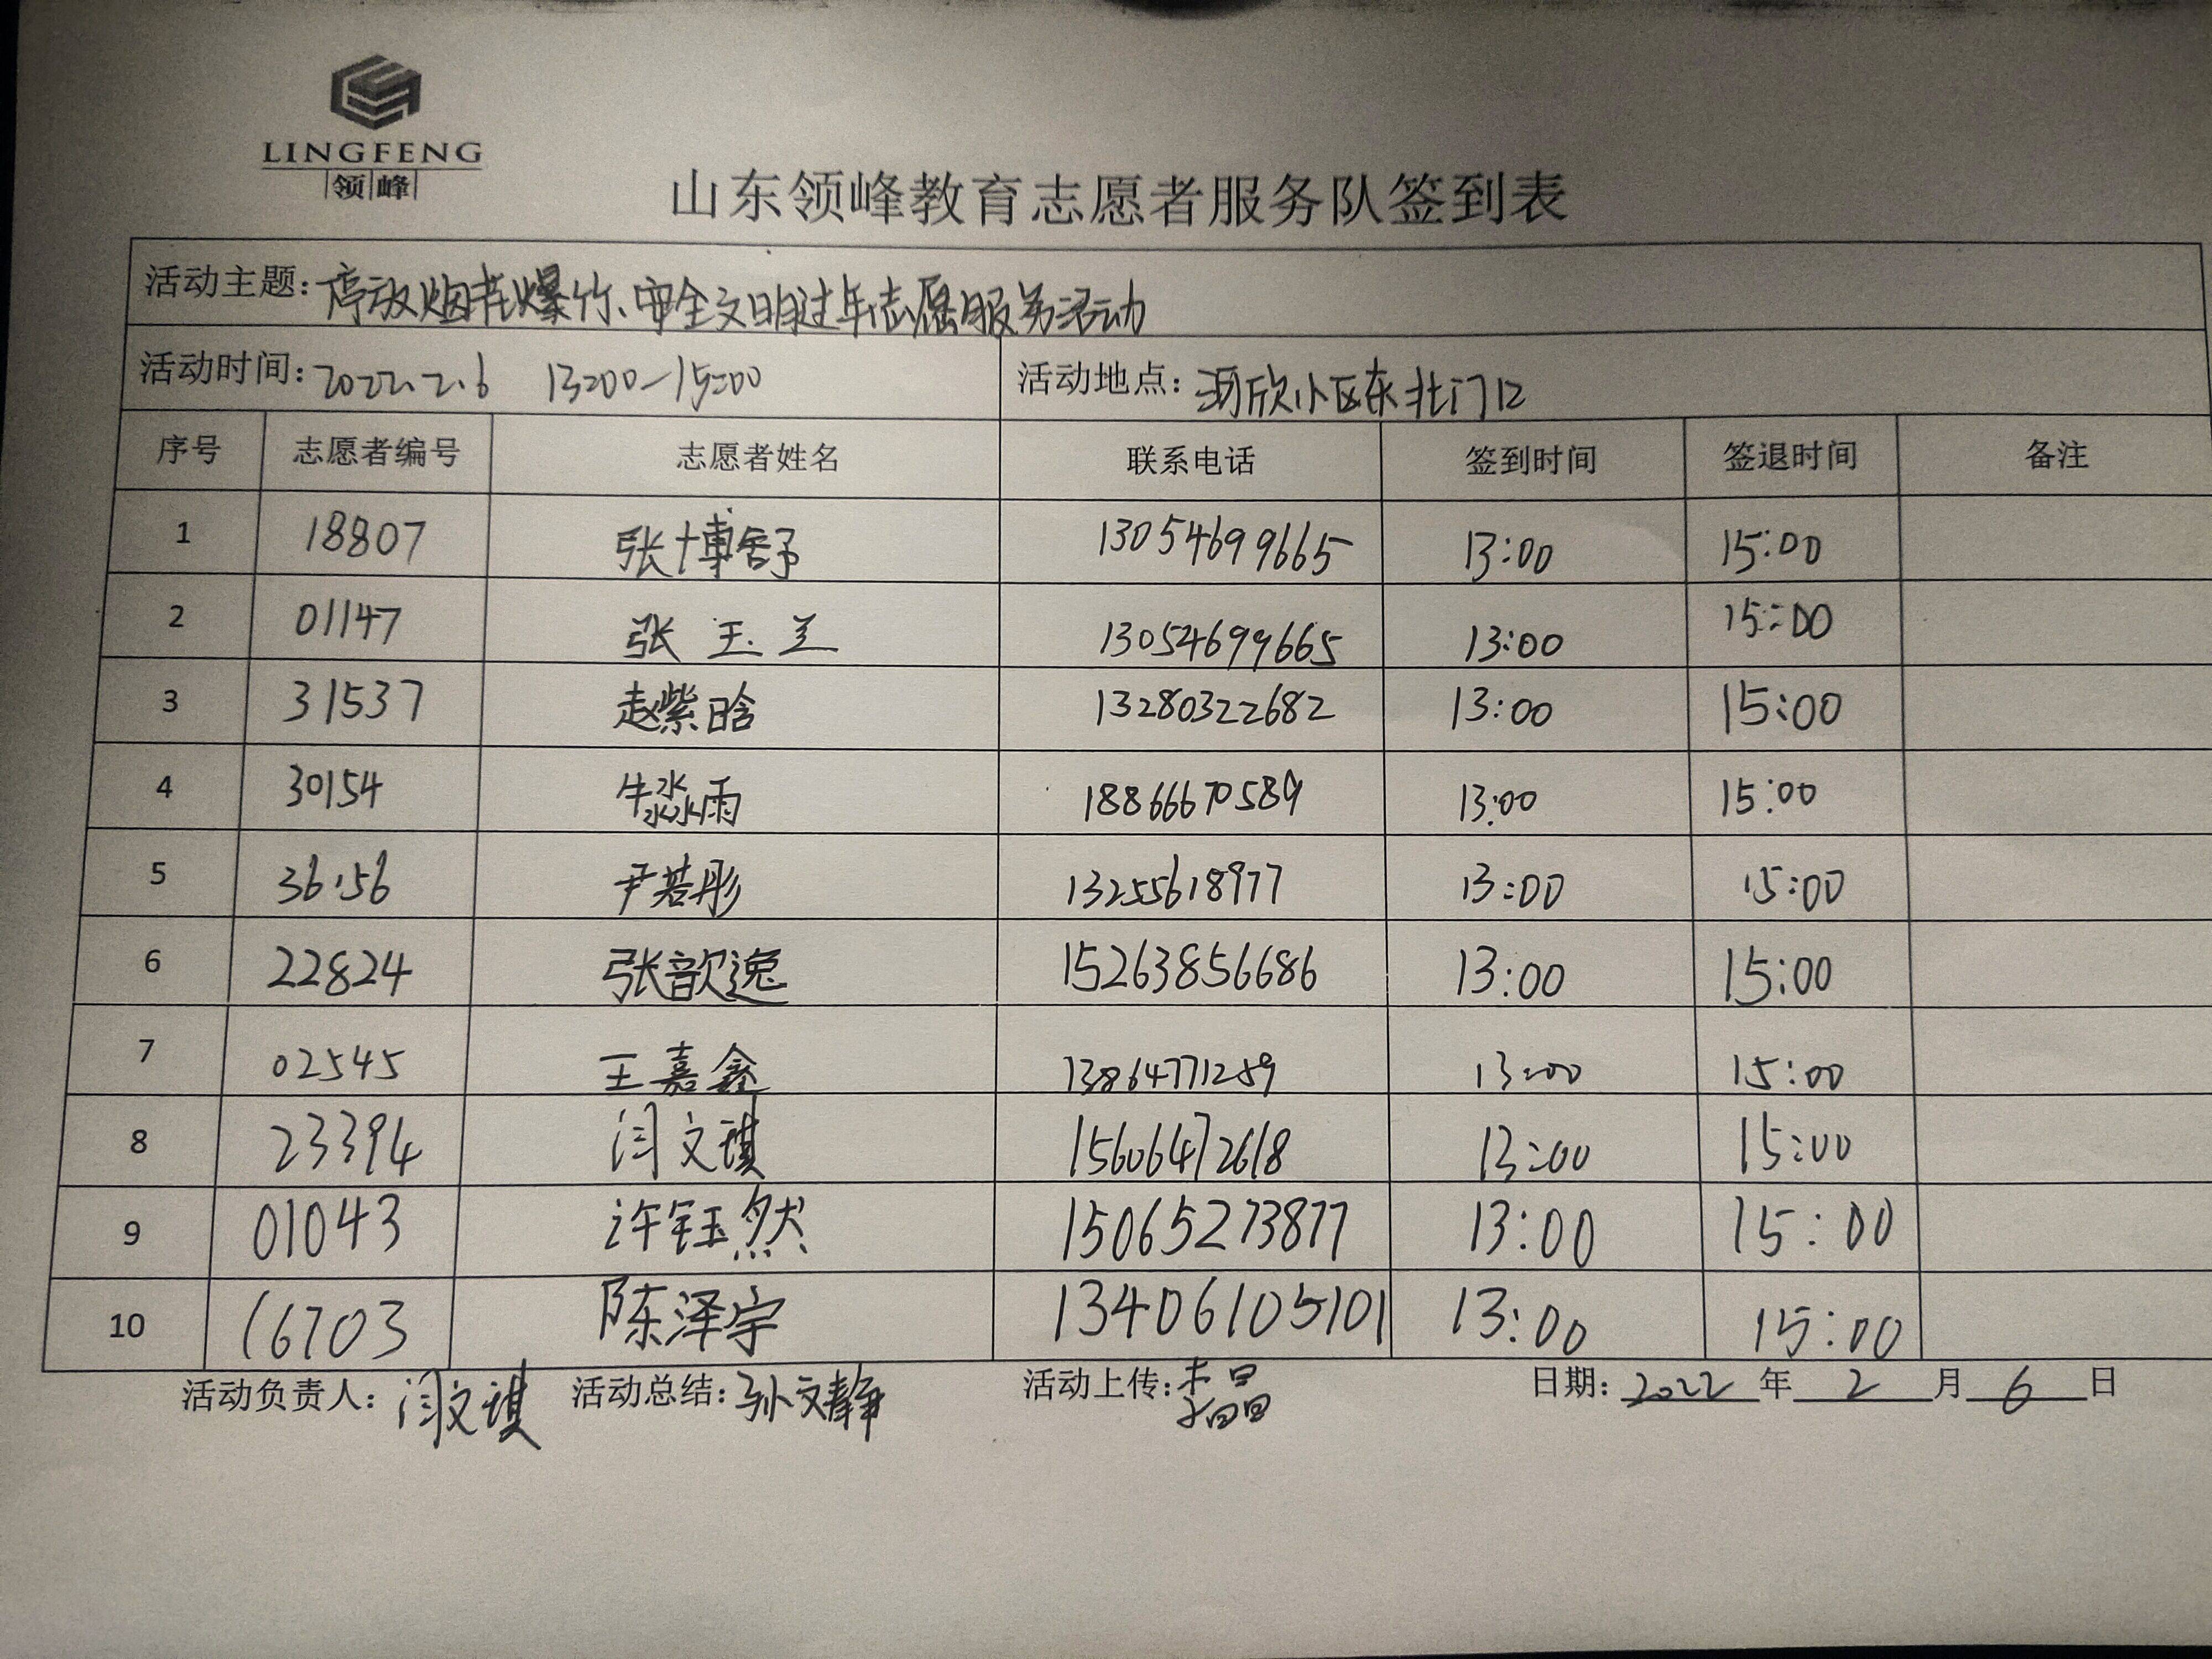 LINGFENG
领峰
山东领峰教育志愿者服务队签到表
活动主题: 停放烟花爆竹、安全文明过年志愿服务活动
活动时间: 2022.2.6 13:00—15:00 活动地点: 河欣小区东北门口
序号 志愿者编号 志愿者姓名 联系电话 签到时间 签退时间 备注
1 18807 张博舒 13054699665 13:00 15:00
2 01147 张玉兰 13054699665 13:00 15:00
3 31537 赵紫晗 13280322682 13:00 15:00
4 30154 牛淼雨 18866670589 13:00 15:00
5 36156 尹若彤 13255618977 13:00 15:00
6 22824 张歆逸 15263856686 13:00 15:00
7 02545 王嘉鑫 13864771259 13:00 15:00
8 23394 闫文琪 15606472618 13:00 15:00
9 01043 许钰然 15065273877 13:00 15:00
10 16703 陈泽宇 13406105101 13:00 15:00
活动负责人: 闫文琪 活动总结: 孙文静 活动上传: 李晶 日期: 2022 年 2 月 6 日